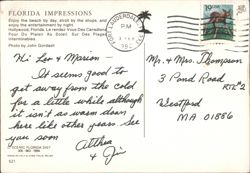 FLORIDA IMPRESSIONS
Enjoy the beach by day, stroll by the shops, and
enjoy the entertainment by night.
Hollywood, Florida. Le rendez-Vous Des Canadiens
Pour Du Plaisir Au Soleil Sur Des Plages
Interminables.
Photo by John Gordash
LAUDERDALE
PM
Hi Leo & Marion -
It seems good to
get away from the cold
for a little while although
it isn't as warm down
here like other years. See
you soon
Althea
& Jim
Mr. & Mrs. Thompson
3 Pond Road
RTE #2
Westford
MA 01886
SCENIC FLORIDA DIST
521
19
USA